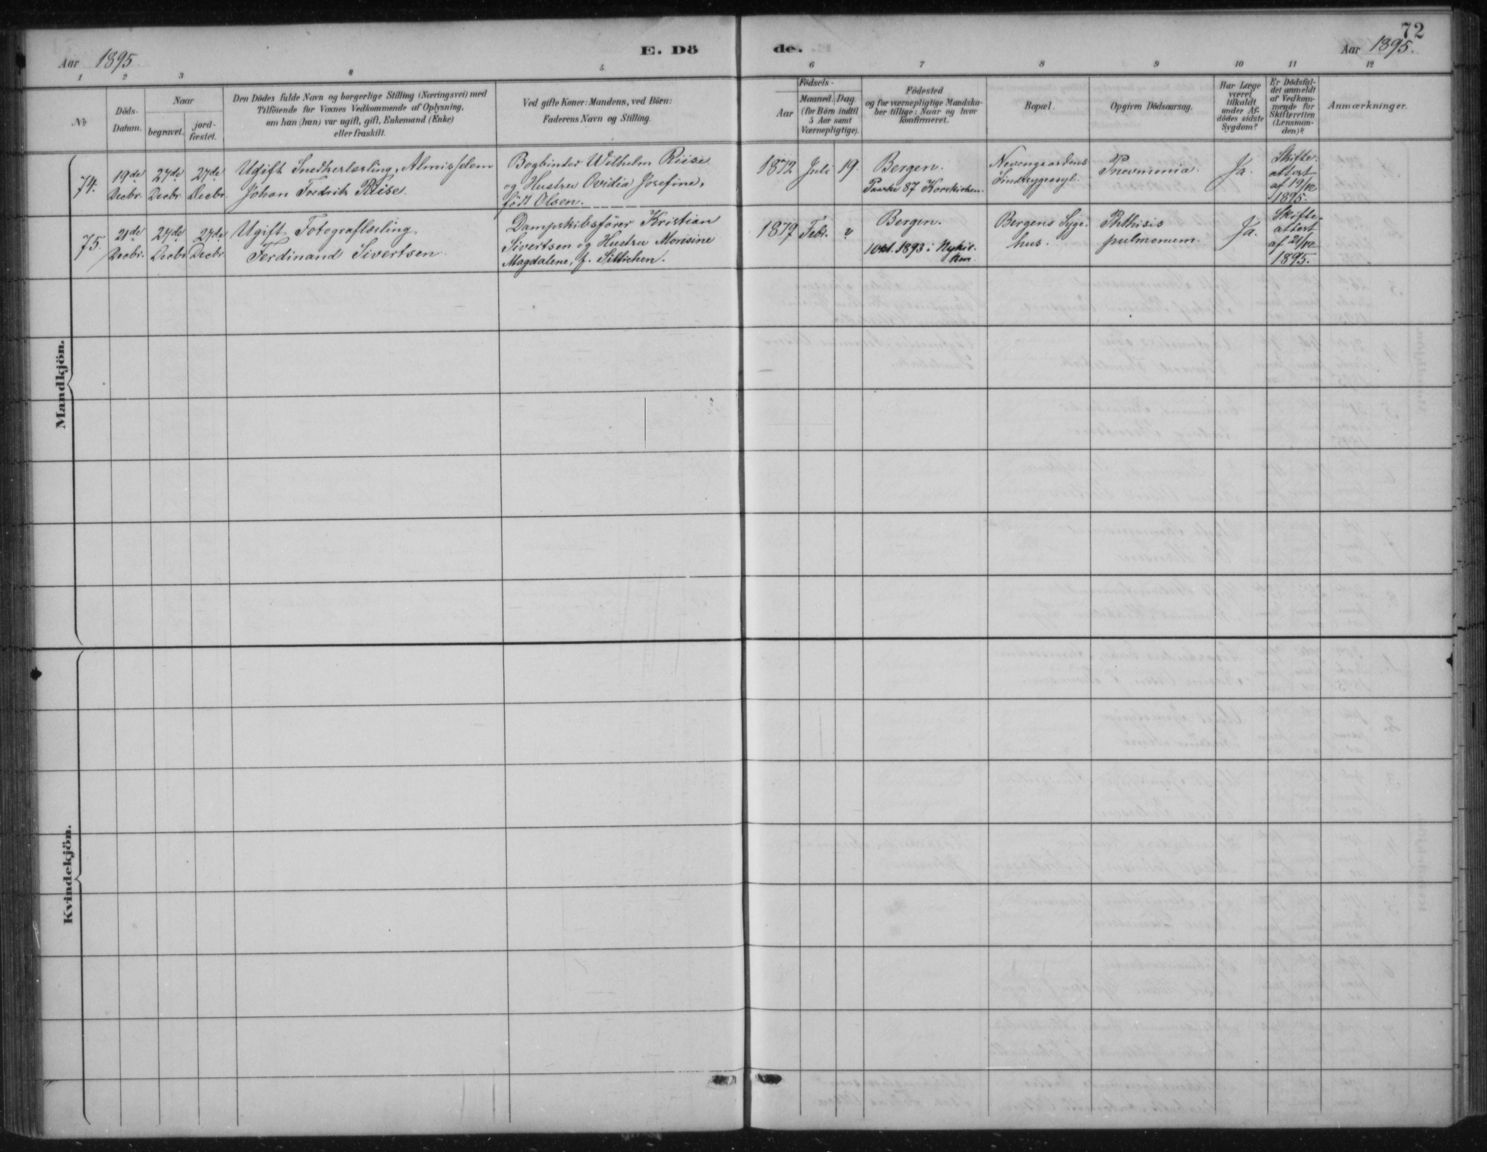 72
Aar 1895.
E. Dö
de.
Aar 1895.
1 2 3 4 5 6 7 8 9 10 11 12
№
Döds-
Datum.
Naar
begravet.
jord-
fæstet.
Den Dödes fulde Navn og borgerlige Stilling (Næringsvei) med
Tilföiende for Voxnes Vedkommende af Oplysning,
om han (hun) var ugift, gift, Enkemand (Enke)
eller fraskilt.
Ved gifte Koner: Mandens, ved Börn:
Faderens Navn og Stilling.
Födsels-
Aar
Maaned
Dag
(for Börn indtil
5 Aar samt
Værnepligtige).
Födested
og for værnepligtige Mandska-
ber tillige: Naar og hvor
konfirmeret.
Bopæl.
Opgiven Dödsaarsag.
Har Læge
været
tilkaldt
under Af-
dödes sidste
Sygdom?
Er Dödsfal-
det anmeldt
af Vedkom-
mende for
Skifteretten
(Lensman-
den)?
Anmærkninger.
Mandkjön.
74.
19de
Decbr.
27de
Decbr
27de
Decbr.
Ugift Snedkerlærling,
Johan Fredrik Riise
Bogbinder Wilhelm Riise
og Hustru Ovidia Josefine,
født Olsen.
1872 Juli 19
Bergen.
87 Korskirken.
Pneumonia.
Ja.
Skifte-
attest
af 19/12
1895.
75.
21de
Decbr.
27de
Decbr
27de
Decbr.
Ugift Fotograflærling
Ferdinand Sivertsen
Dampskibsfører Kristian
Sivertsen og Hustru Monsine
Magdalene, f.
1879 Febr. "
Bergen.
1893 i Nykir-
ken
Bergens Syge-
hus.
Phthisis
pulmonum
Ja.
Skifte-
attest
af 21/12
1895.
Kvindekjön.